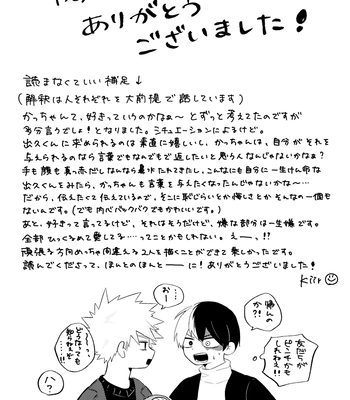 ありがとう
ございました!
読まなくていい補足↓
(解釈は人それぞれを大前提で話しています)
かっちゃんって、好きっていうのかなぁ〜とずっと考えてたのですが
多分言うでしょ!となりました。シチュエーションによるけど。
出久くんに求められるのは素直に嬉しいし、かっちゃんは、自分がそれを
与えられるなら言葉でもなんでもで返したいと思うんじゃないかなぁ?
手も顔も真っ赤だしなんなら鼻水たれてたし、こんなにも自分に一生けん命な
出久くんをみたら、かっちゃんも言葉を与えたくなったんじゃないかな…
だから、伝えたくて伝えているので、そこに恥じらいとか悔しさとかそんなの一個も
ないんです。(でも内心バクバクでもかわいいです。)
あと、好きって言ってるけど、それはそうだけど、嫌な部分は一生嫌です。
全部ひっくるめて愛してる……ってことかもしれない。えーーっ、!?
頑張る方向めっちゃ間違える2人を描くことができて楽しかったです。
読んでくださって、ほんとのほんとーーに!ありがとうございました!
帰んの
か?!
おー
友だちが
ピンチかも
しれねえ!!
どうなっても
知らねぇぞ…
ハ?